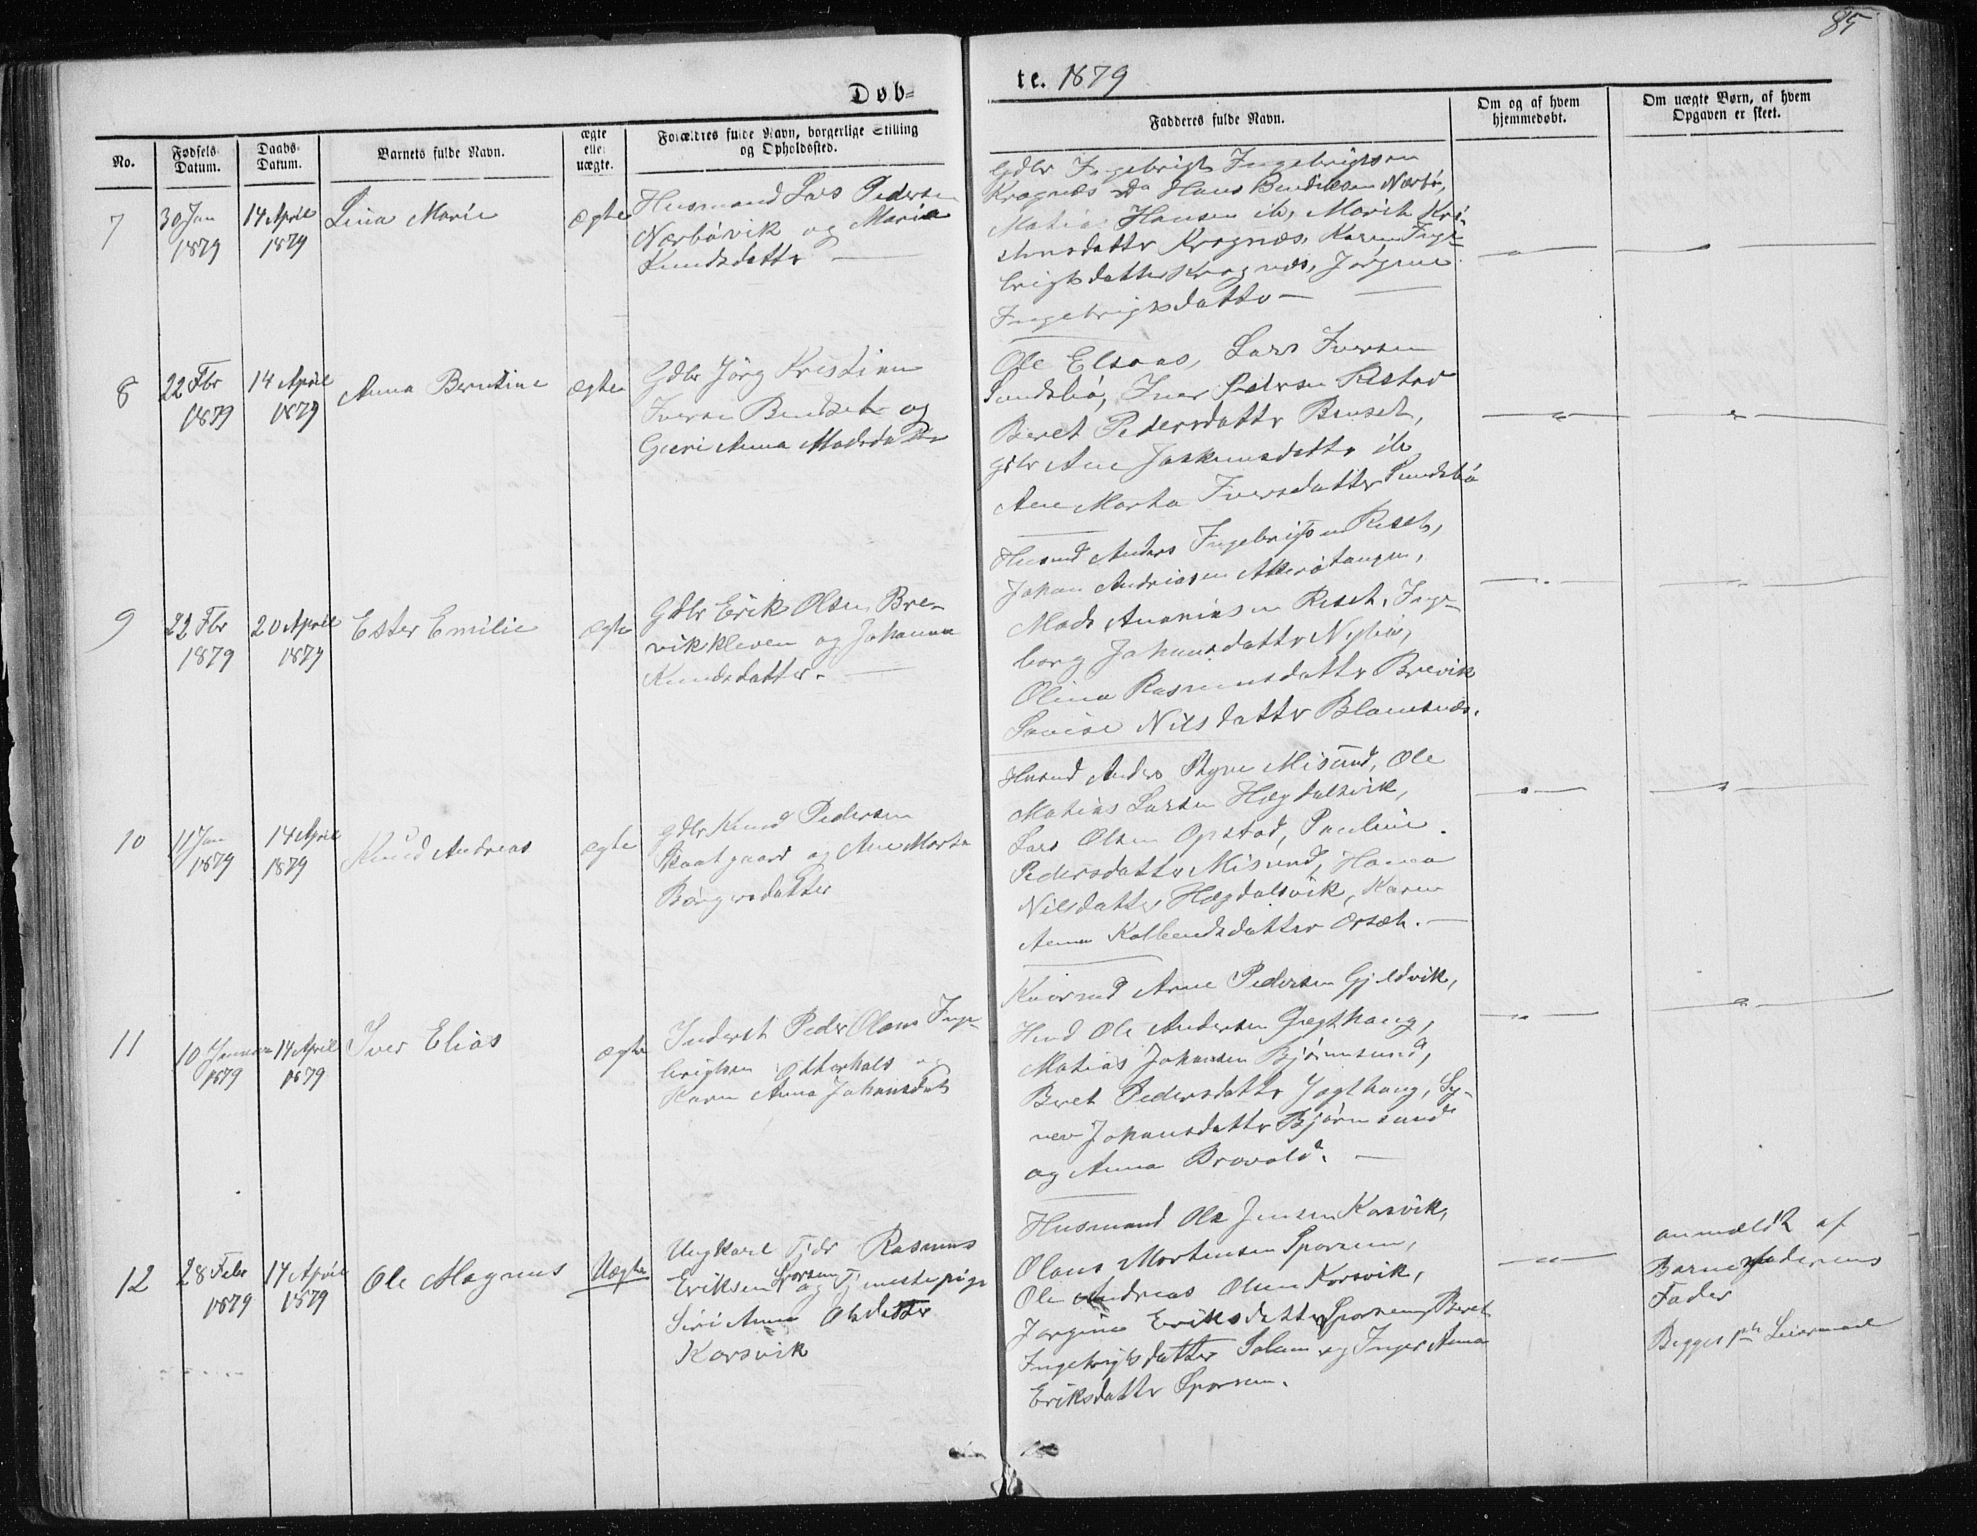 85
Døb=
te. 1879
No.
Fødsels Datum.
Daabs Datum.
Barnets fulde Navn.
ægte eller uægte.
Forældres fulde Navn, borgerlige Stilling og Opholdssted.
Fadderes fulde Navn.
Om og af hvem hjemmedøbt.
Om uægte Børn, af hvem Opgaven er skeet.
7
30 Jan 1879
14 April 1879
Lina Marie
ægte
Husmand Lars Pedersen
Nærbøvik og Maria
Knudsdatter —
Gdbr Ingebrigt Ingebrigtsen
Kragnæs Hans Nærbø,
Hansen ib, Marit
Kragnæs, Karen Inge-
brigtsdatter Kragnæs, Jørgine
Ingebrigtsdatter —
8
22 Fbr 1879
14 April 1879
Anna Berntine
ægte
Gdbr Jörg Kristian
Iversen og
Anna Madsdatter
Ole Elsaas, Lars Iversen
Sundsbö, Iver Pedersen
Beret Pedersdatter
Gdbr Ane ib
Ane Marta Iversdatter Sundsbö
9
22 Fbr 1879
20 April 1879
Ester Emilie
ægte
Gdbr Erik Olsen Bre-
vikkleven og Johanna
Knudsdatter. —
Husmd Anders Ingebrigtsen Riset,
Johan Andriasen
Mads Riset, Inge-
borg Johansdatter Nybö,
Olina Rasmusdatter Brevik
Lovise Nilsdatter
10
11 Jan 1879
14 April 1879
Knud Andreas
ægte
Gdbr Knud Pedersen
og Ane Marta
Börgesdatter
Husmd Anders Misund, Ole
Matias Larsen Hægdalsvik,
Lars Olsen Opstad, Pauline
Pedersdatter Misund, Hanna
Nilsdatter Hægdalsvik, Karen
Anna —
11
10 Januar 1879
14 April 1879
Iver Elias
ægte
Inderst Peder Olaus Inge-
brigtsen Otterhals og
Karen Anna Johansdat
Arne Pedersen Gjeldvik,
Ole Andersen
Matias Johansen Bjørnsund,
Beret Pedersdatter Sy-
nev Johansdatter Bjørnsund
og Anna —
12
28 Febr 1879
14 April 1879
Ole Magnus
Uægte
Ungkarl Rasmus
Eriksen Sporsem og Tjenestepige
Siri Anna Olsdatter
Korsvik
Husmand Ole Jensen Korsvik,
Olaus Mortensen Sporsem,
Ole Andreas Olsen Korsvik,
Jørgine Eriksdatter Sporsem, Beret
Ingebrigtsdatter Solem og Inger Anna
Eriksdatter Sporsem.
anmeldt af
Barnefaderens
Fader
Begges Leiermaal